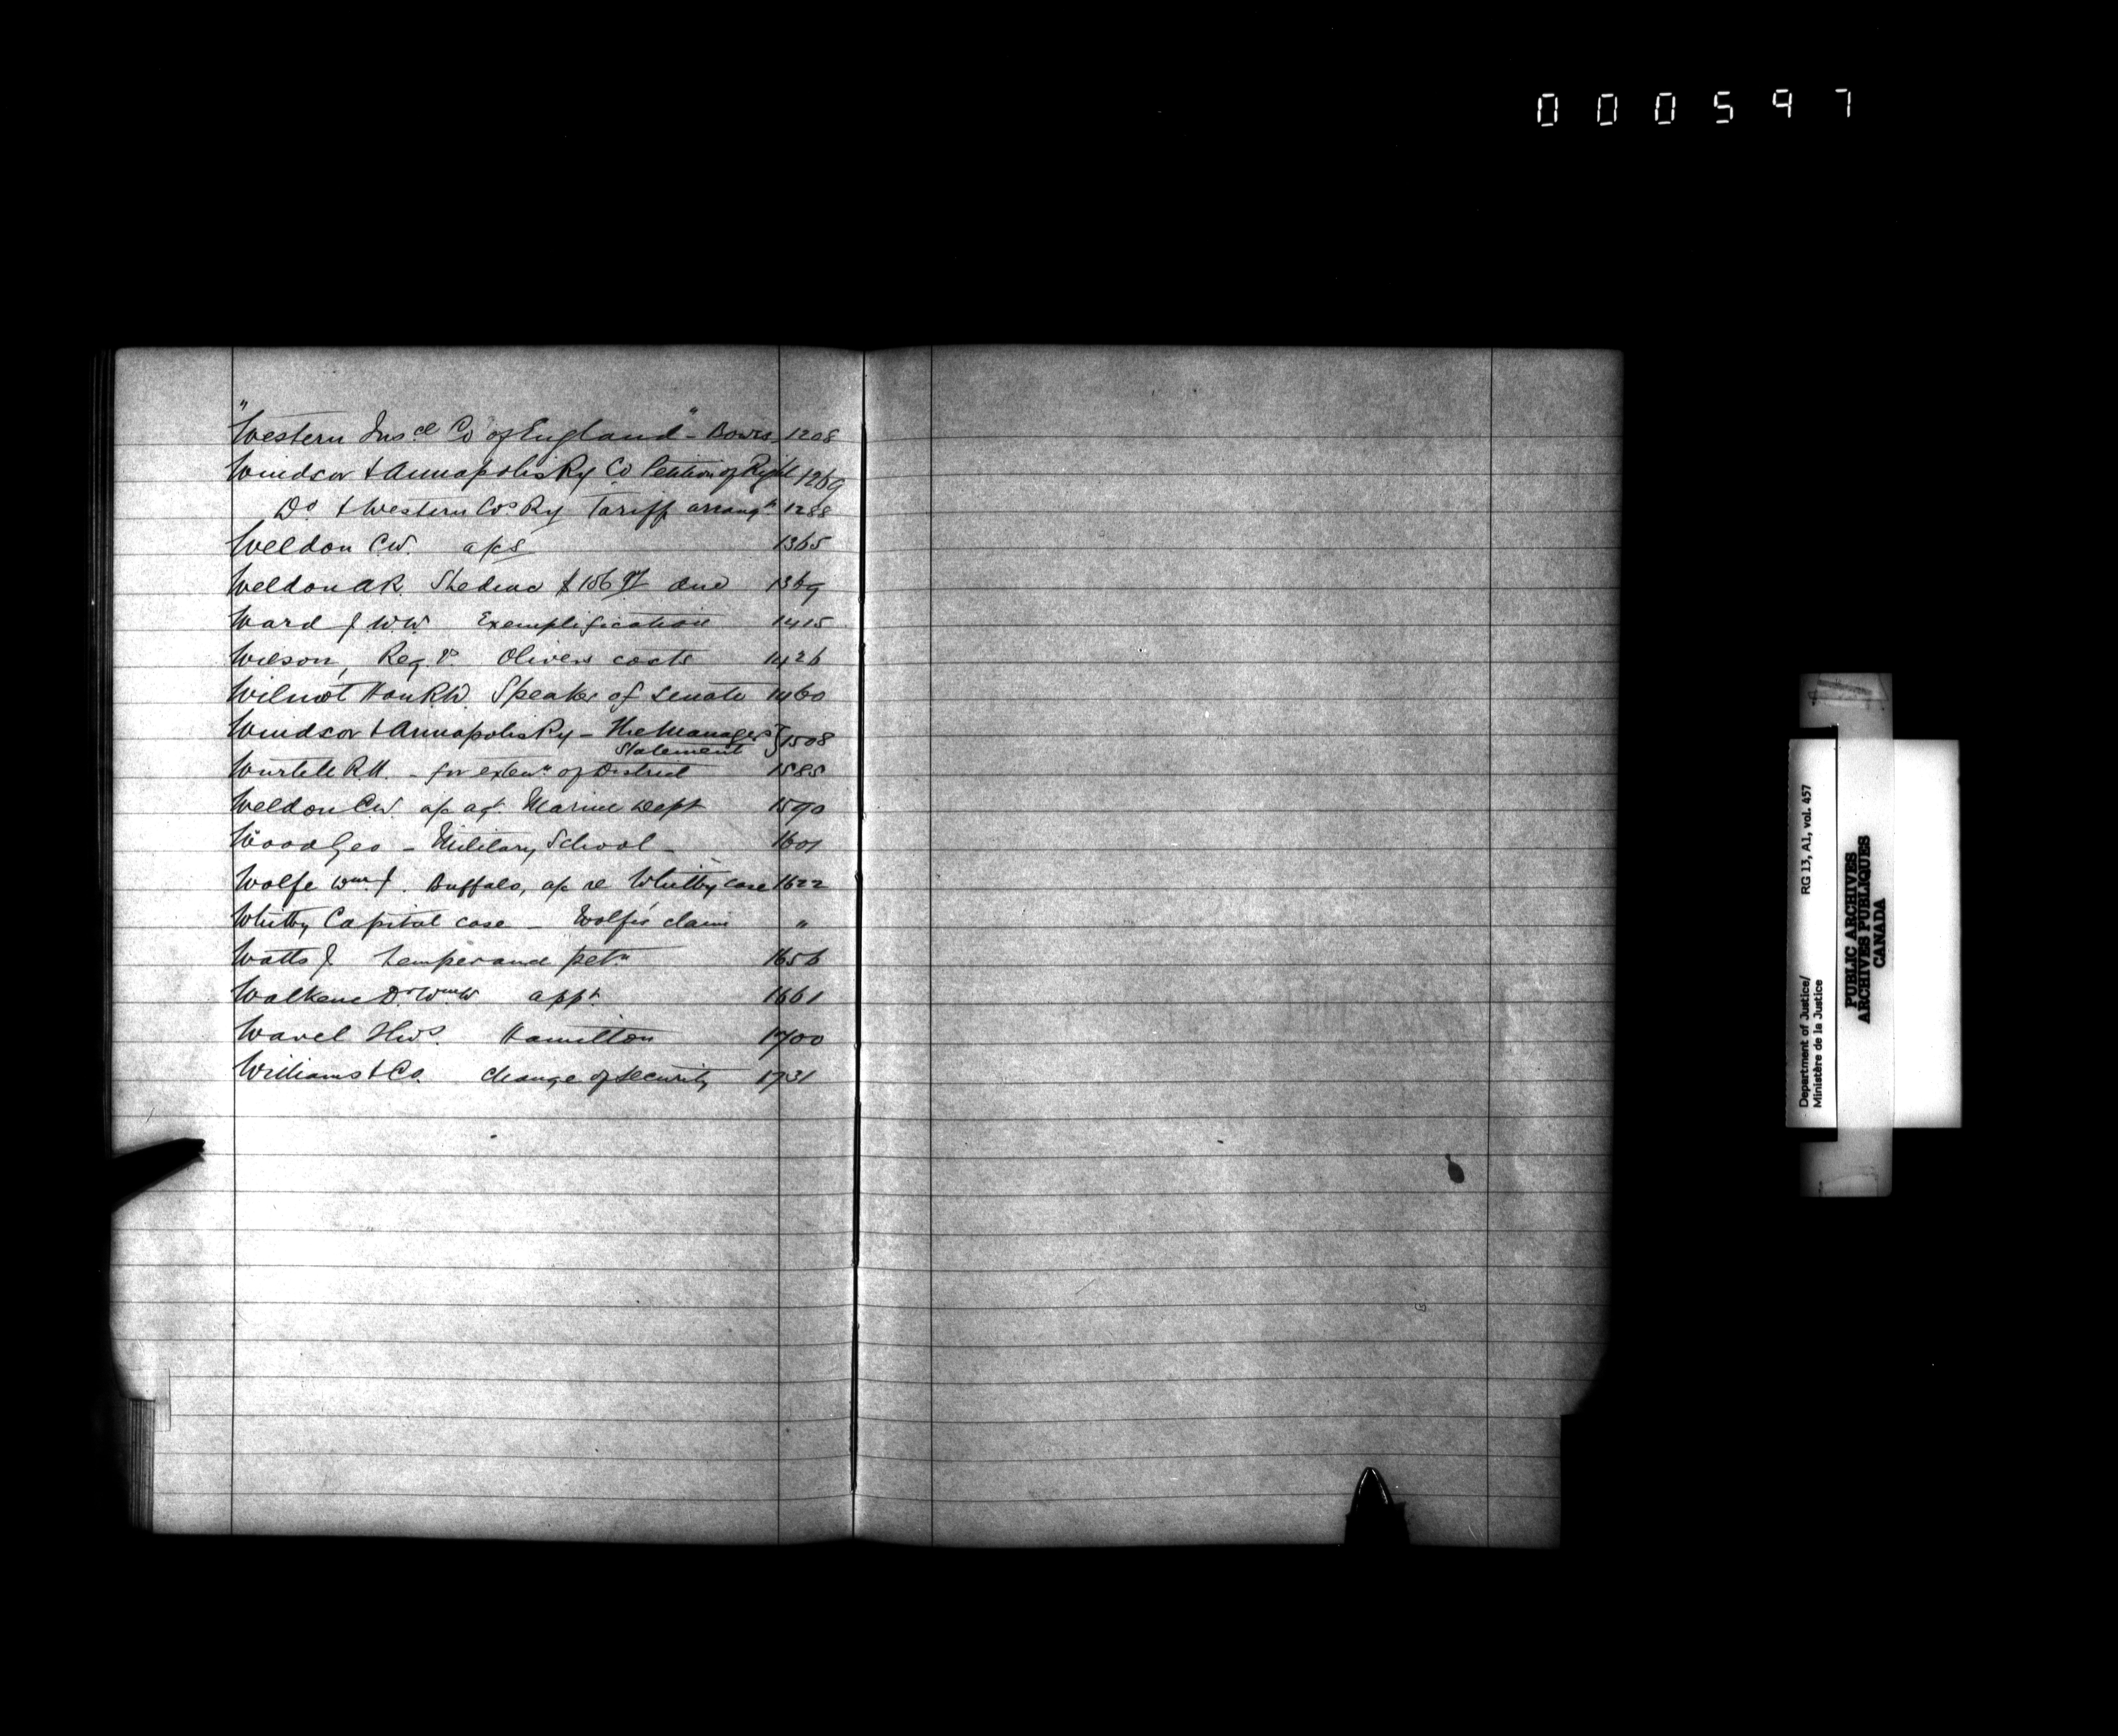 000597
"Western Insce Co of England" - Bowes 1208
Windsor & Annapolis Ry Co Petition of Right 1269
Do & Western Cos Ry Tariff arrangt 1288
Weldon C.W. a/cs 1365
Weldon A.R. Shediac $ due 1369
Ward J W.W. Exemplification 1415
Wilson, Reg. vs Olivers costs 1426
Wilmot Hon R.W. Speaker of Senate 1460
Windsor & Annapolis Ry - The Managers
Statement } 1508
Wurtele R.H. - for extenn of District 1585
Weldon C.W. a/c agt. Marine Dept 1590
Wood Geo - Military School - 1601
Wolfe Wm J. Buffalo, a/c re Whitby case 1622
Whitby Capital case - Wolfe's claim "
Watts J temperance petn 1656
Walkem Dr Wm W appt 1661
Hamilton 1700
Williams & Co. change of security 1731
Department of Justice/ RG 13, A1, vol. 457
Ministère de la Justice
PUBLIC ARCHIVES
ARCHIVES PUBLIQUES
CANADA